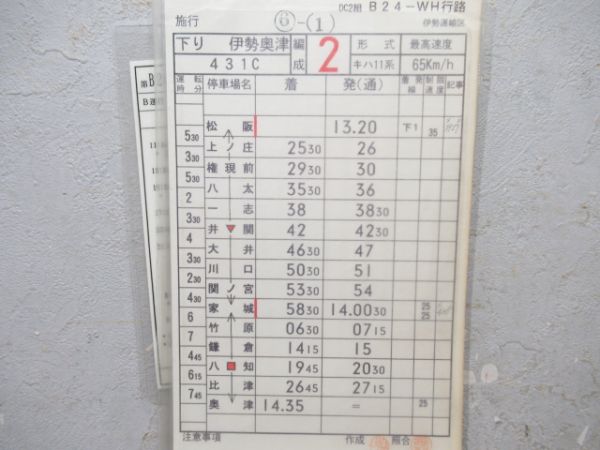 DC2組 B24-WH行路
施行 ⑥-(1) 伊勢運輸区
下り 伊勢奥津 編成 2 形式 最高速度
431C キハ11系 65Km/h
運転時分 停車場名 着 発(通) 着発線 制限速度 記事
松阪 13.20 下1 35
530
上ノ庄 2530 26
330
権現前 2930 30
530
八太 3530 36
2
一志 38 3830
330
井関 42 4230
4
大井 4630 47
330
川口 5030 51
230
関ノ宮 5330 54
430
家城 5830 14.0030 25 25
6
竹原 0630 0715
7
鎌倉 1415 15
445
八知 1945 2030
615
比津 2645 2715
745
奥津 14.35 = 25
注意事項 作成 照合